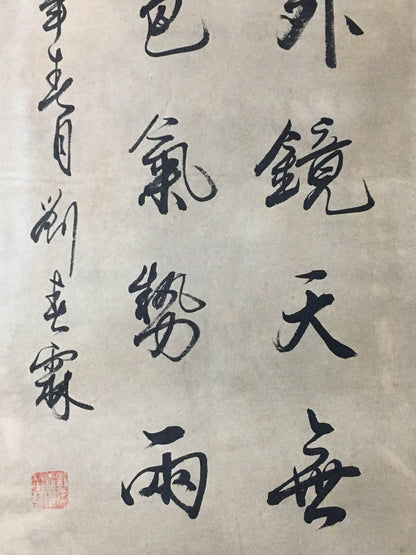 外鏡天無
色氣勢兩
年春月劉春霖